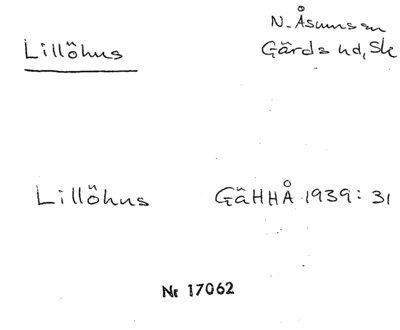 N. Åsumssn
Lillöhus Gärds hd, Sk
Lillöhus GäHHÅ 1939: 31
Nr 17062